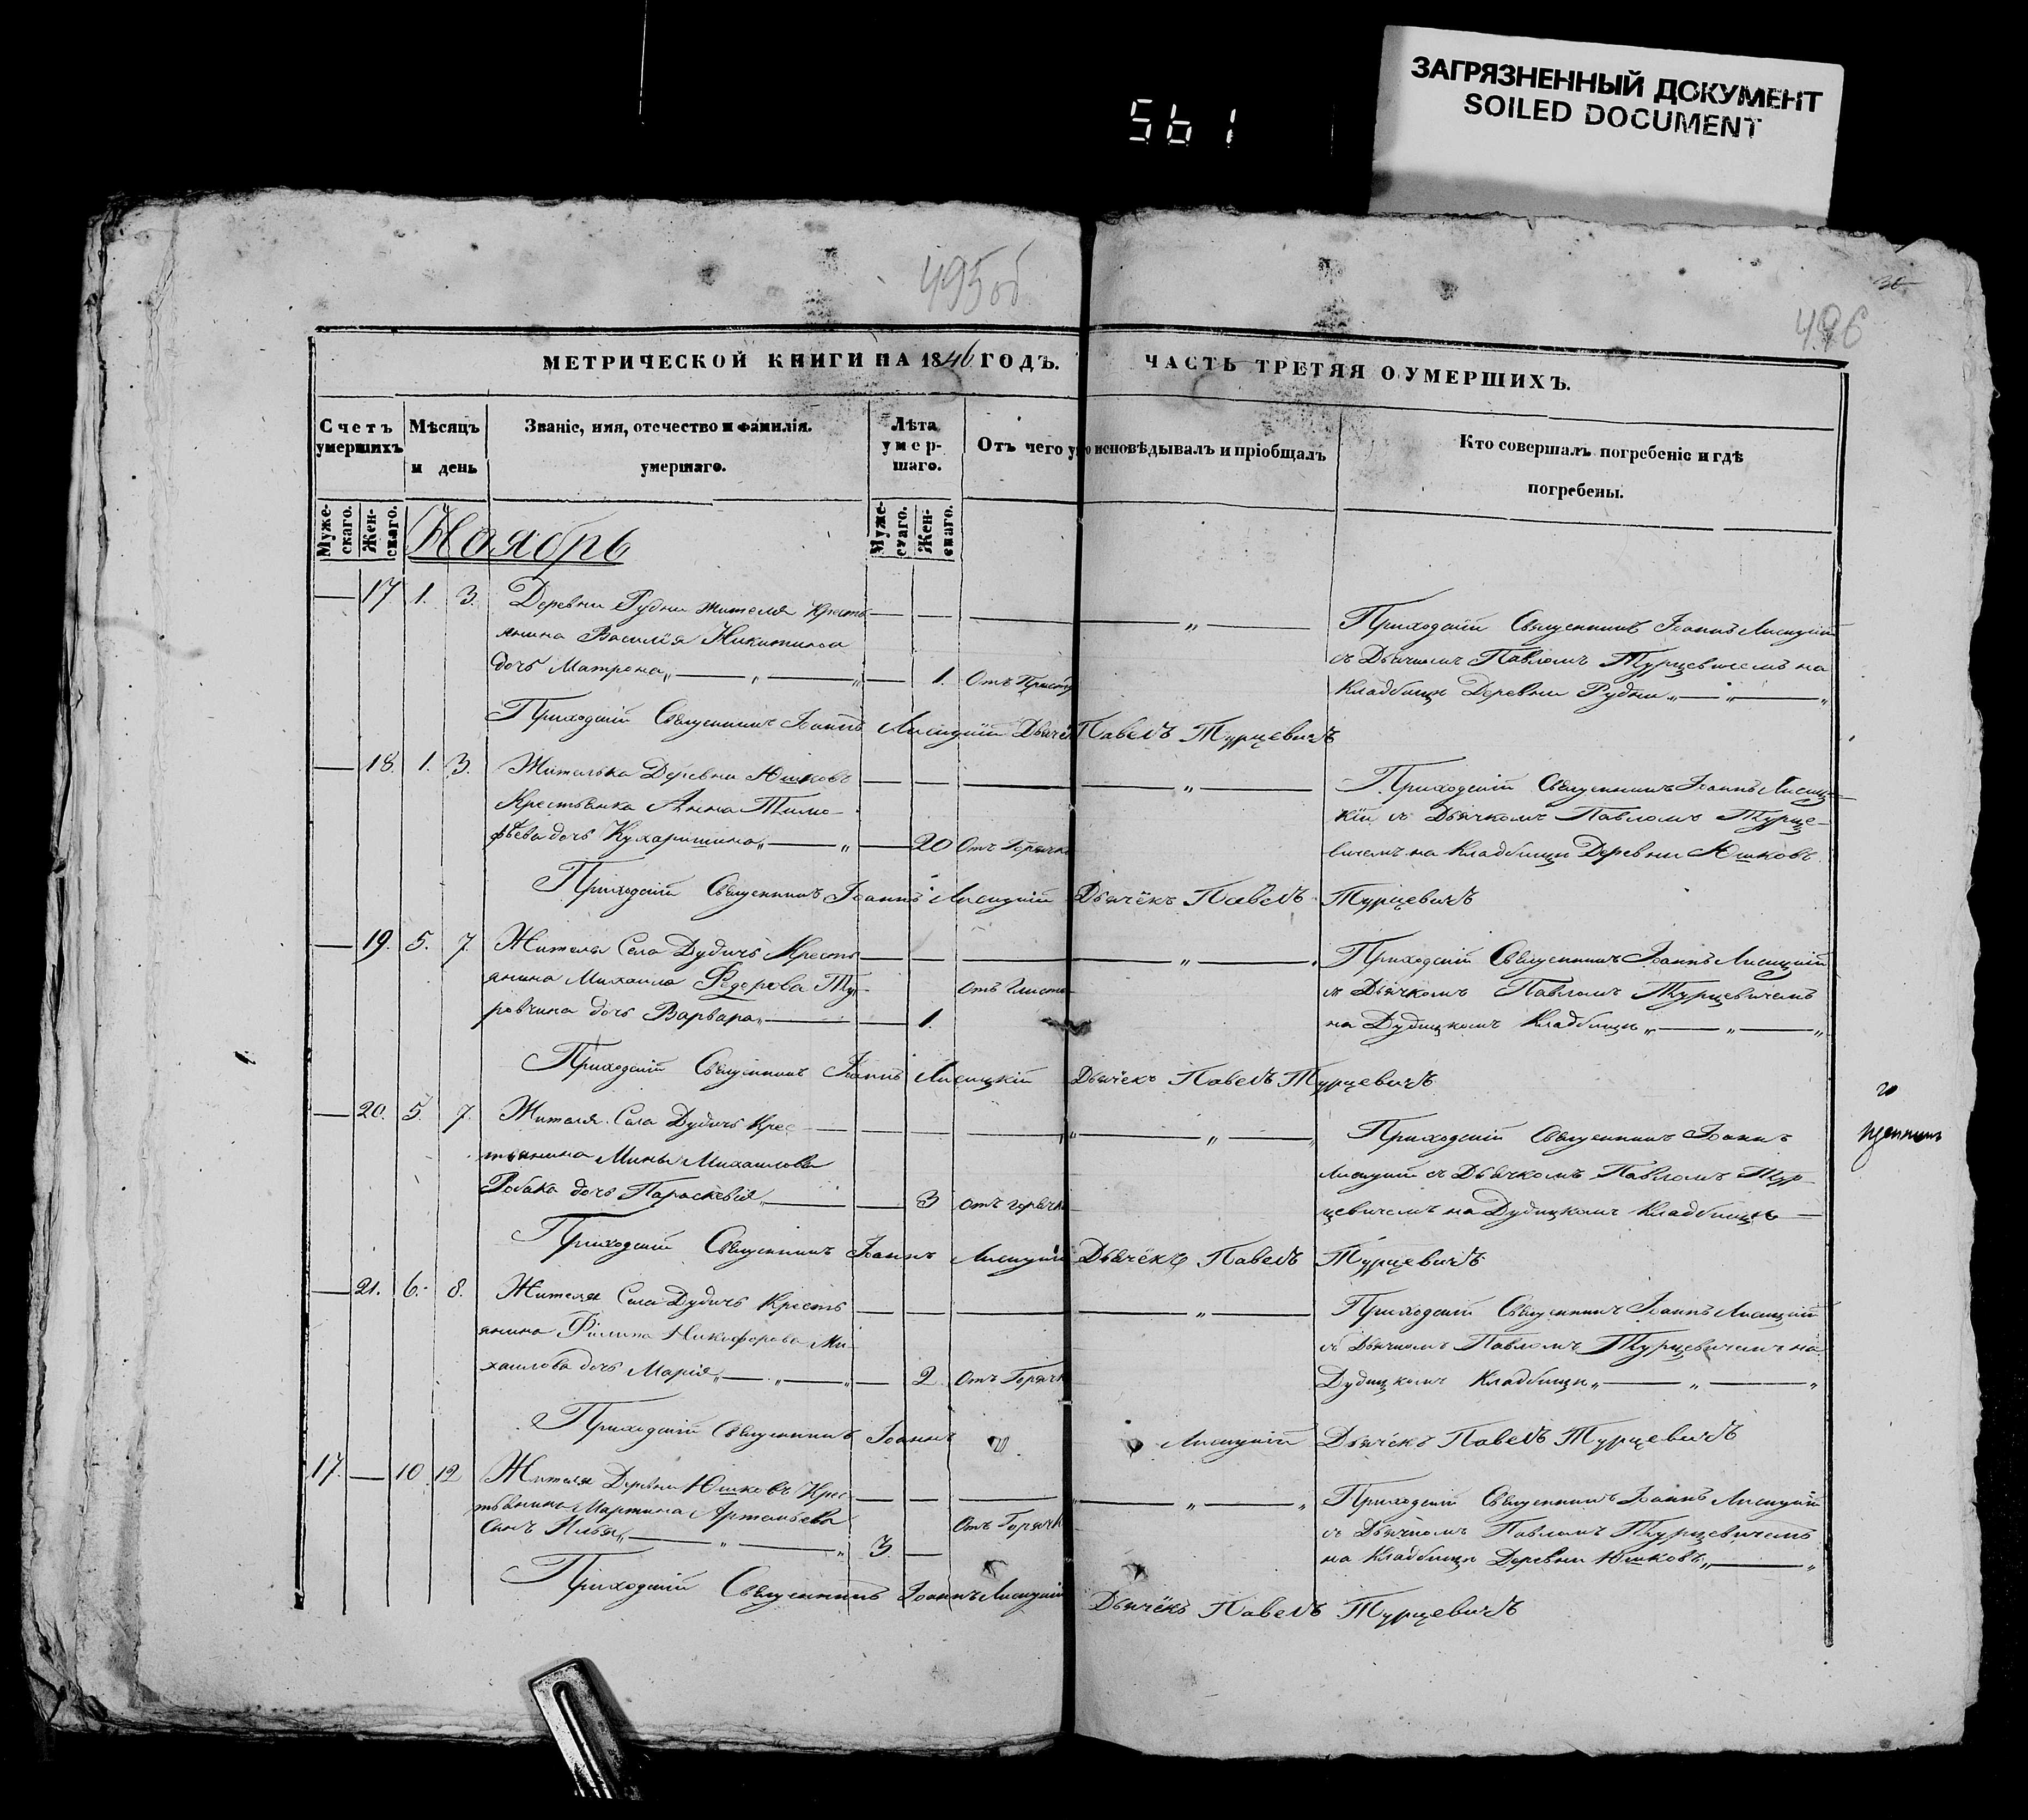 ЗАГРЯЗНЕННЫЙ ДОКУМЕНТ
SOILED DOCUMENT
561
495об
496
МЕТРИЧЕСКОЙ КНИГИ НА 1846 ГОДЪ.
ЧАСТЬ ТРЕТЯЯ О УМЕРШИХЪ.
Счетъ умершихъ
Мѣсяцъ и день
Званіе, имя, отечество и фамилія.
умершаго.
Лѣта умер-
шаго.
Отъ чего
исповѣдывалъ и пріобщалъ
Кто совершалъ погребеніе и гдѣ
погребены.
Муже-
скаго.
Жен-
скаго.
Муже-
скаго.
Жен-
скаго.
Ноябрь
17 1. 3. Деревни Рудни жителя Кресть
янина Василія Никитина
дочь Матрона 1.
Приходскій Священникъ Іоаннъ Лисицкій
съ Дьячкомъ Павломъ Турцевичемъ на
Кладбищѣ Деревни Рудни
Приходскій Священникъ Іоаннъ Лисицкій Павелъ Турцевичъ
18. 1. 3. Жителька Деревни Юшковъ
Крестьянка Анна Тимо-
фѣева дочь 20 Отъ Горячк
Приходскій Священникъ Іоаннъ Лисиц-
кій съ Дьячкомъ Павломъ Турце-
вичемъ на Кладбищѣ Деревни Юшковъ
Приходскій Священникъ Іоаннъ Лисицкій Дьячёкъ Павелъ Турцевичъ
19. 5. 7. Жителя Села Дудичъ Кресть
янина Михаила Федорова Ту-
ровчина дочь Варвара 1.
Отъ Глисто
Приходскій Священникъ Іоаннъ Лисицкій
съ Дьячкомъ Павломъ Турцевичемъ
на Дудицкомъ Кладбищѣ
Приходскій Священникъ Іоаннъ Лисицкій Дьячёкъ Павелъ Турцевичъ
20. 5 7. Жителя Села Дудичъ Крес-
тьянина Мины Михайлова
Робака дочь Параскевія 3 Отъ горячк
Приходскій Священникъ Іоаннъ
Лисицкій съ Дьячкомъ Павломъ Тур-
цевичемъ на Дудицкомъ Кладбищѣ
Приходскій Священникъ Іоаннъ Лисицкій Дьячёкъ Павелъ Турцевичъ
21. 6. 8. Жителя Села Дудичъ Кресть
янина Филипа Никифорова Ми-
хайлова дочь Марія 2 Отъ Горячк
Приходскій Священникъ Іоаннъ Лисицкій
съ Дьячкомъ Павломъ Турцевичемъ на
Дудицкомъ Кладбищѣ
Приходскій Священникъ Іоаннъ Лисицкій Дьячёкъ Павелъ Турцевичъ
17. 10 12 Жителя Деревни Юшковъ Крес-
тьянина Мартина Артемьева
Сынъ Илья 3
Отъ Горячк
Приходскій Священникъ Іоаннъ Лисицкій
съ Дьячкомъ Павломъ Турцевичемъ
на Кладбищѣ Деревни Юшковъ
Приходскій Священникъ Іоаннъ Лисицкій Дьячёкъ Павелъ Турцевичъ